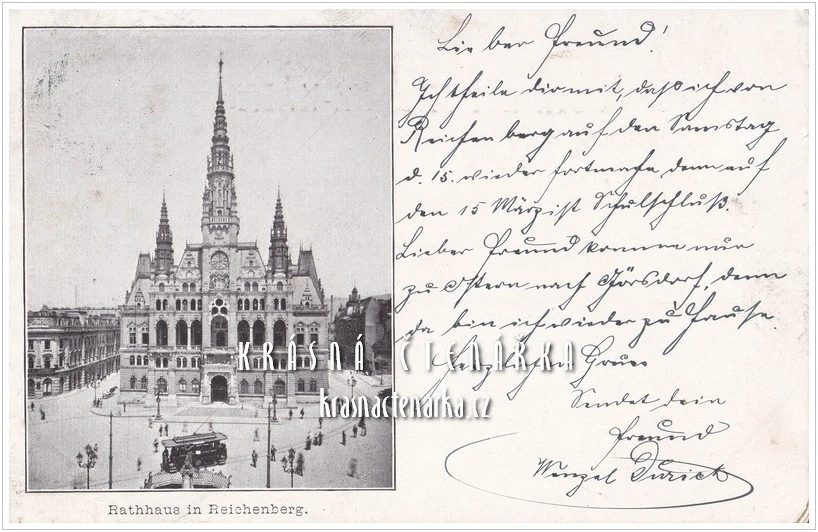 Lieber Freund!
Ich theile dir mit, daß ich von
Reichenberg auf den Samstag
d. 15. wieder fortmache, denn auf
den 15 März ist Schulschluß.
Lieber Freund komme nur
zu Ostern nach Görsdorf, denn
da bin ich wieder zu Hause.
Herzlichen Gruss
Sendet dein
Freund
Wenzel
KRÁSNÁ ČTENÁRKA
krasnactenarka.cz
Rathhaus in Reichenberg.